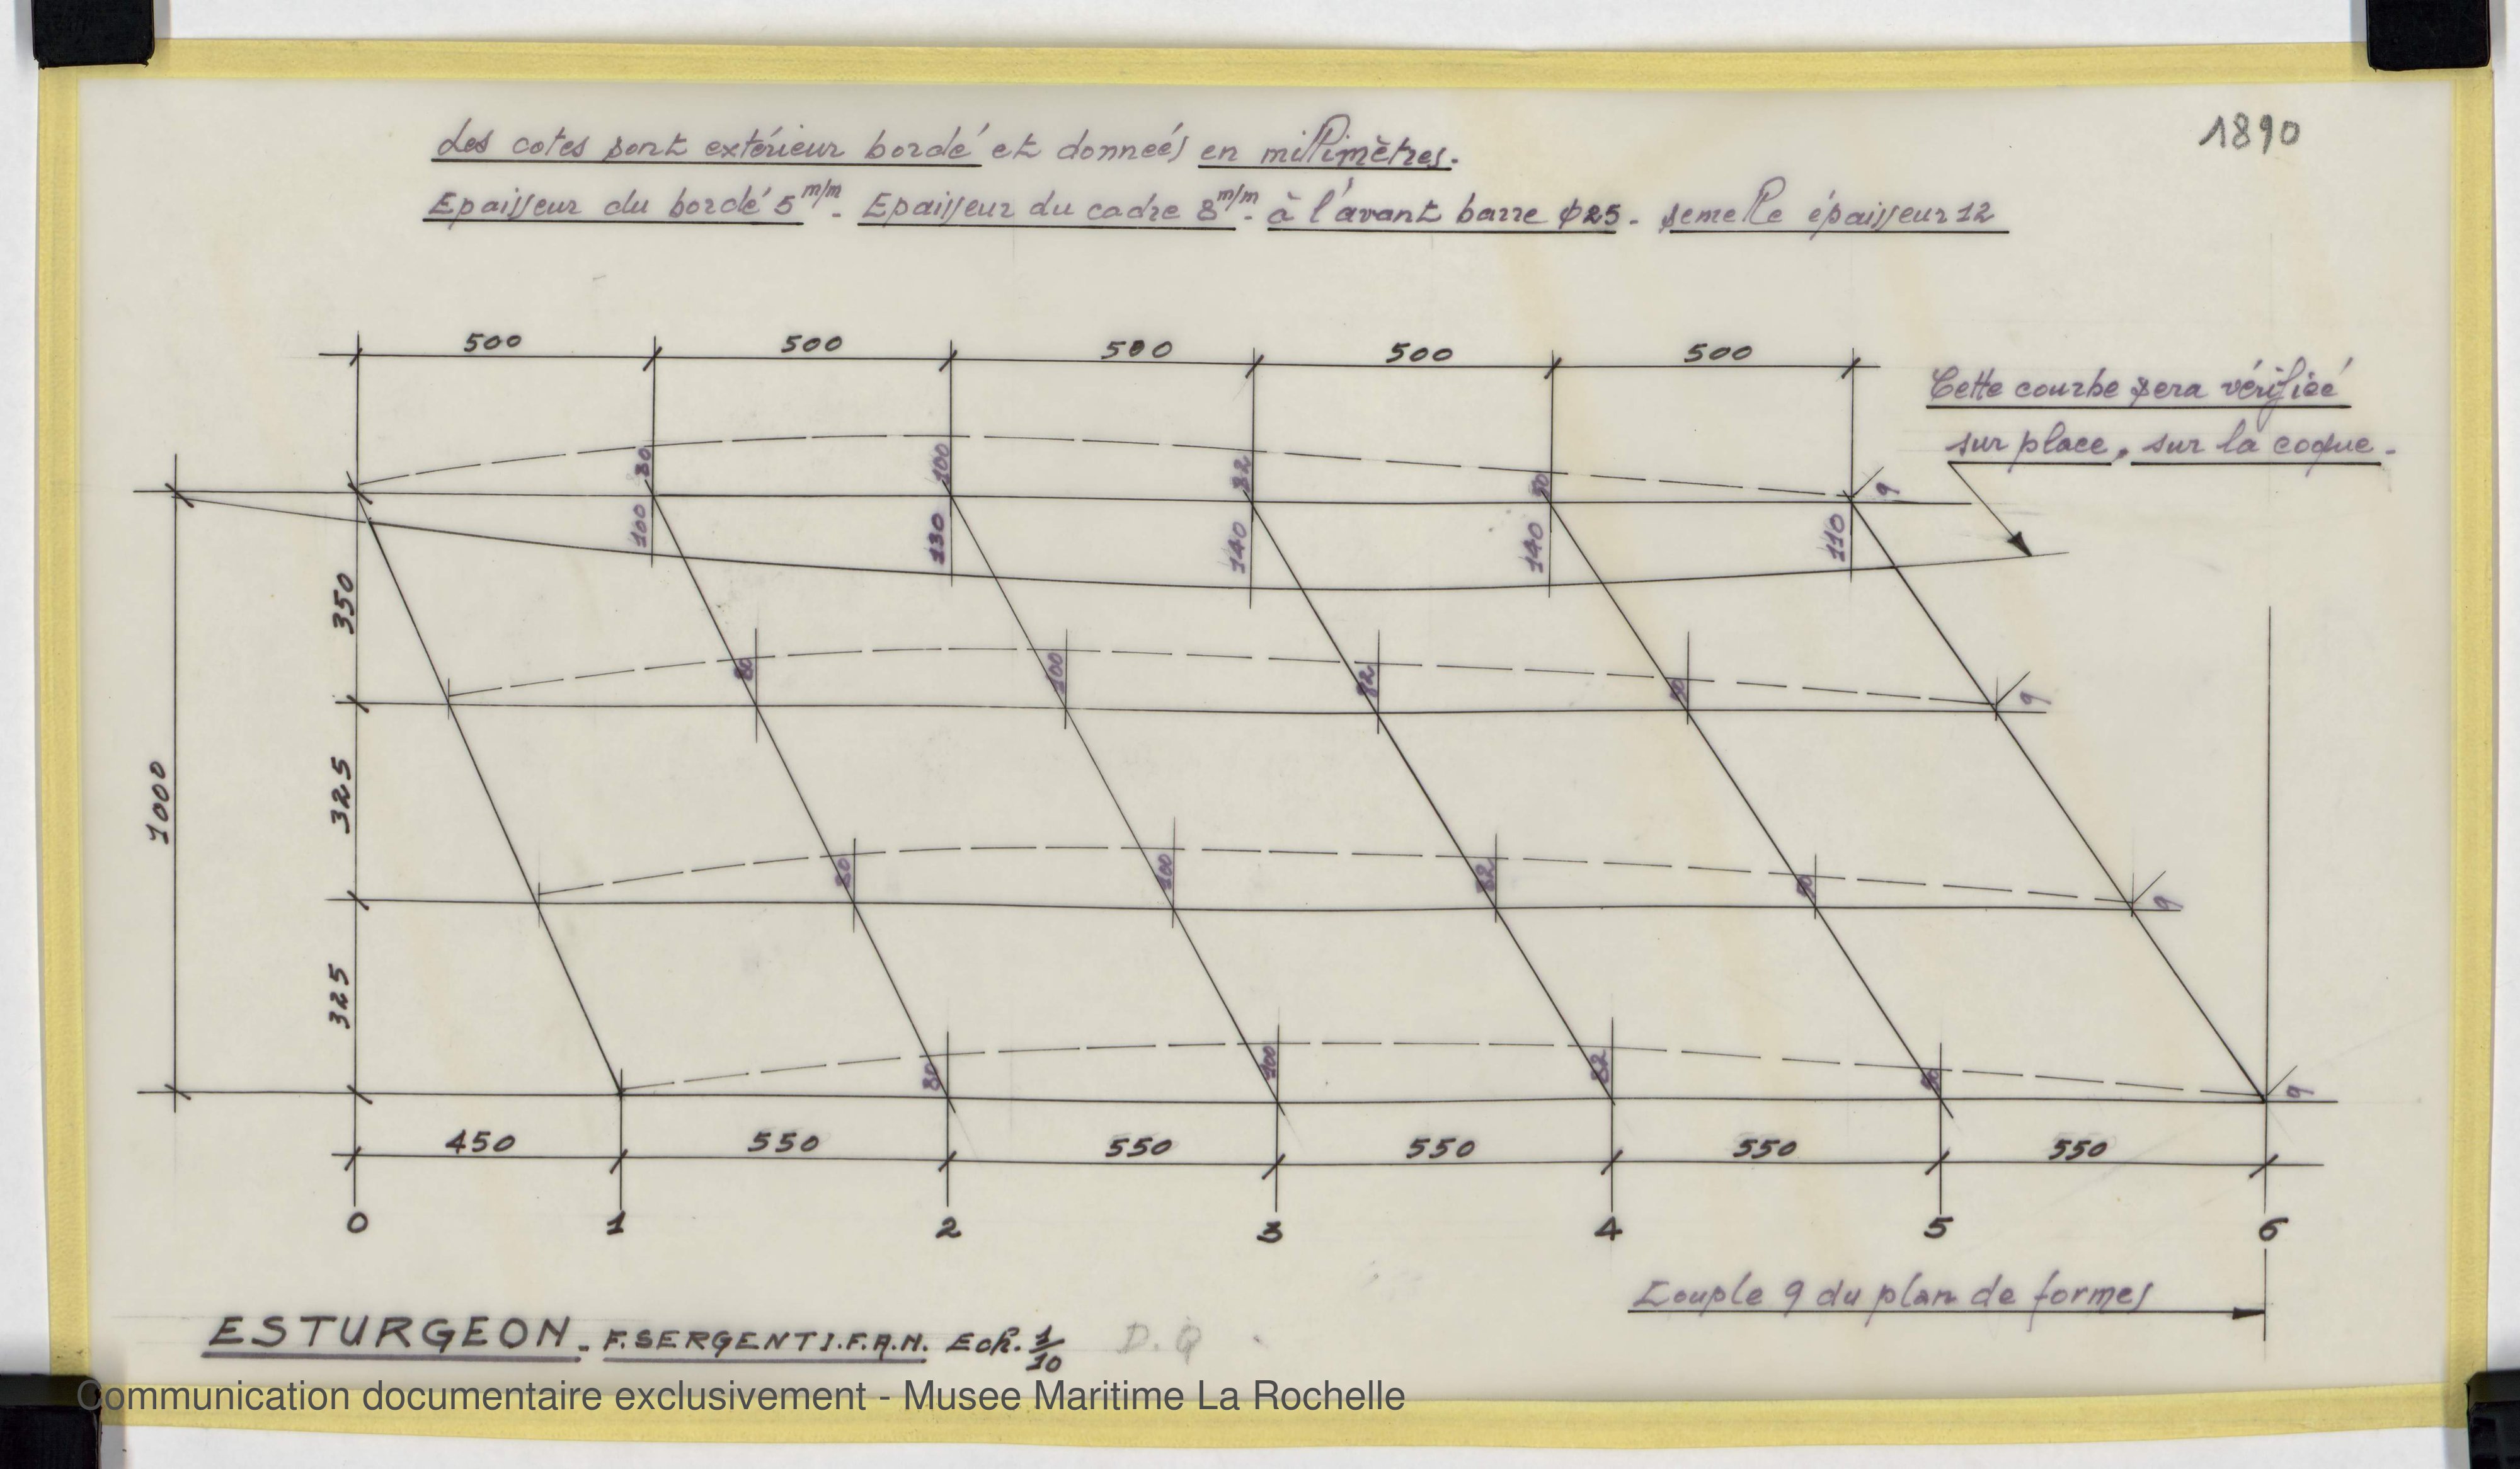 1890
Les cotes sont extérieur bordé et données en millimètres.
Epaisseur du bordé 5 m/m - Epaisseur du cadre 8 m/m - à l'avant barre φ25 - semelle épaisseur 12
500 500 500 500 500
Cette courbe sera vérifiée
sur place, sur la coque -
80 100 82 50 9
100 130 140 140 110
350
80 100 82 50 9
1000
325
80 100 82 50 9
325
80 100 82 50 9
450 550 550 550 550 550
0 1 2 3 4 5 6
Couple 9 du plan de formes
ESTURGEON. F. SERGENT I.F.A.N. Ech. 1/10 D.Q
Communication documentaire exclusivement - Musee Maritime La Rochelle